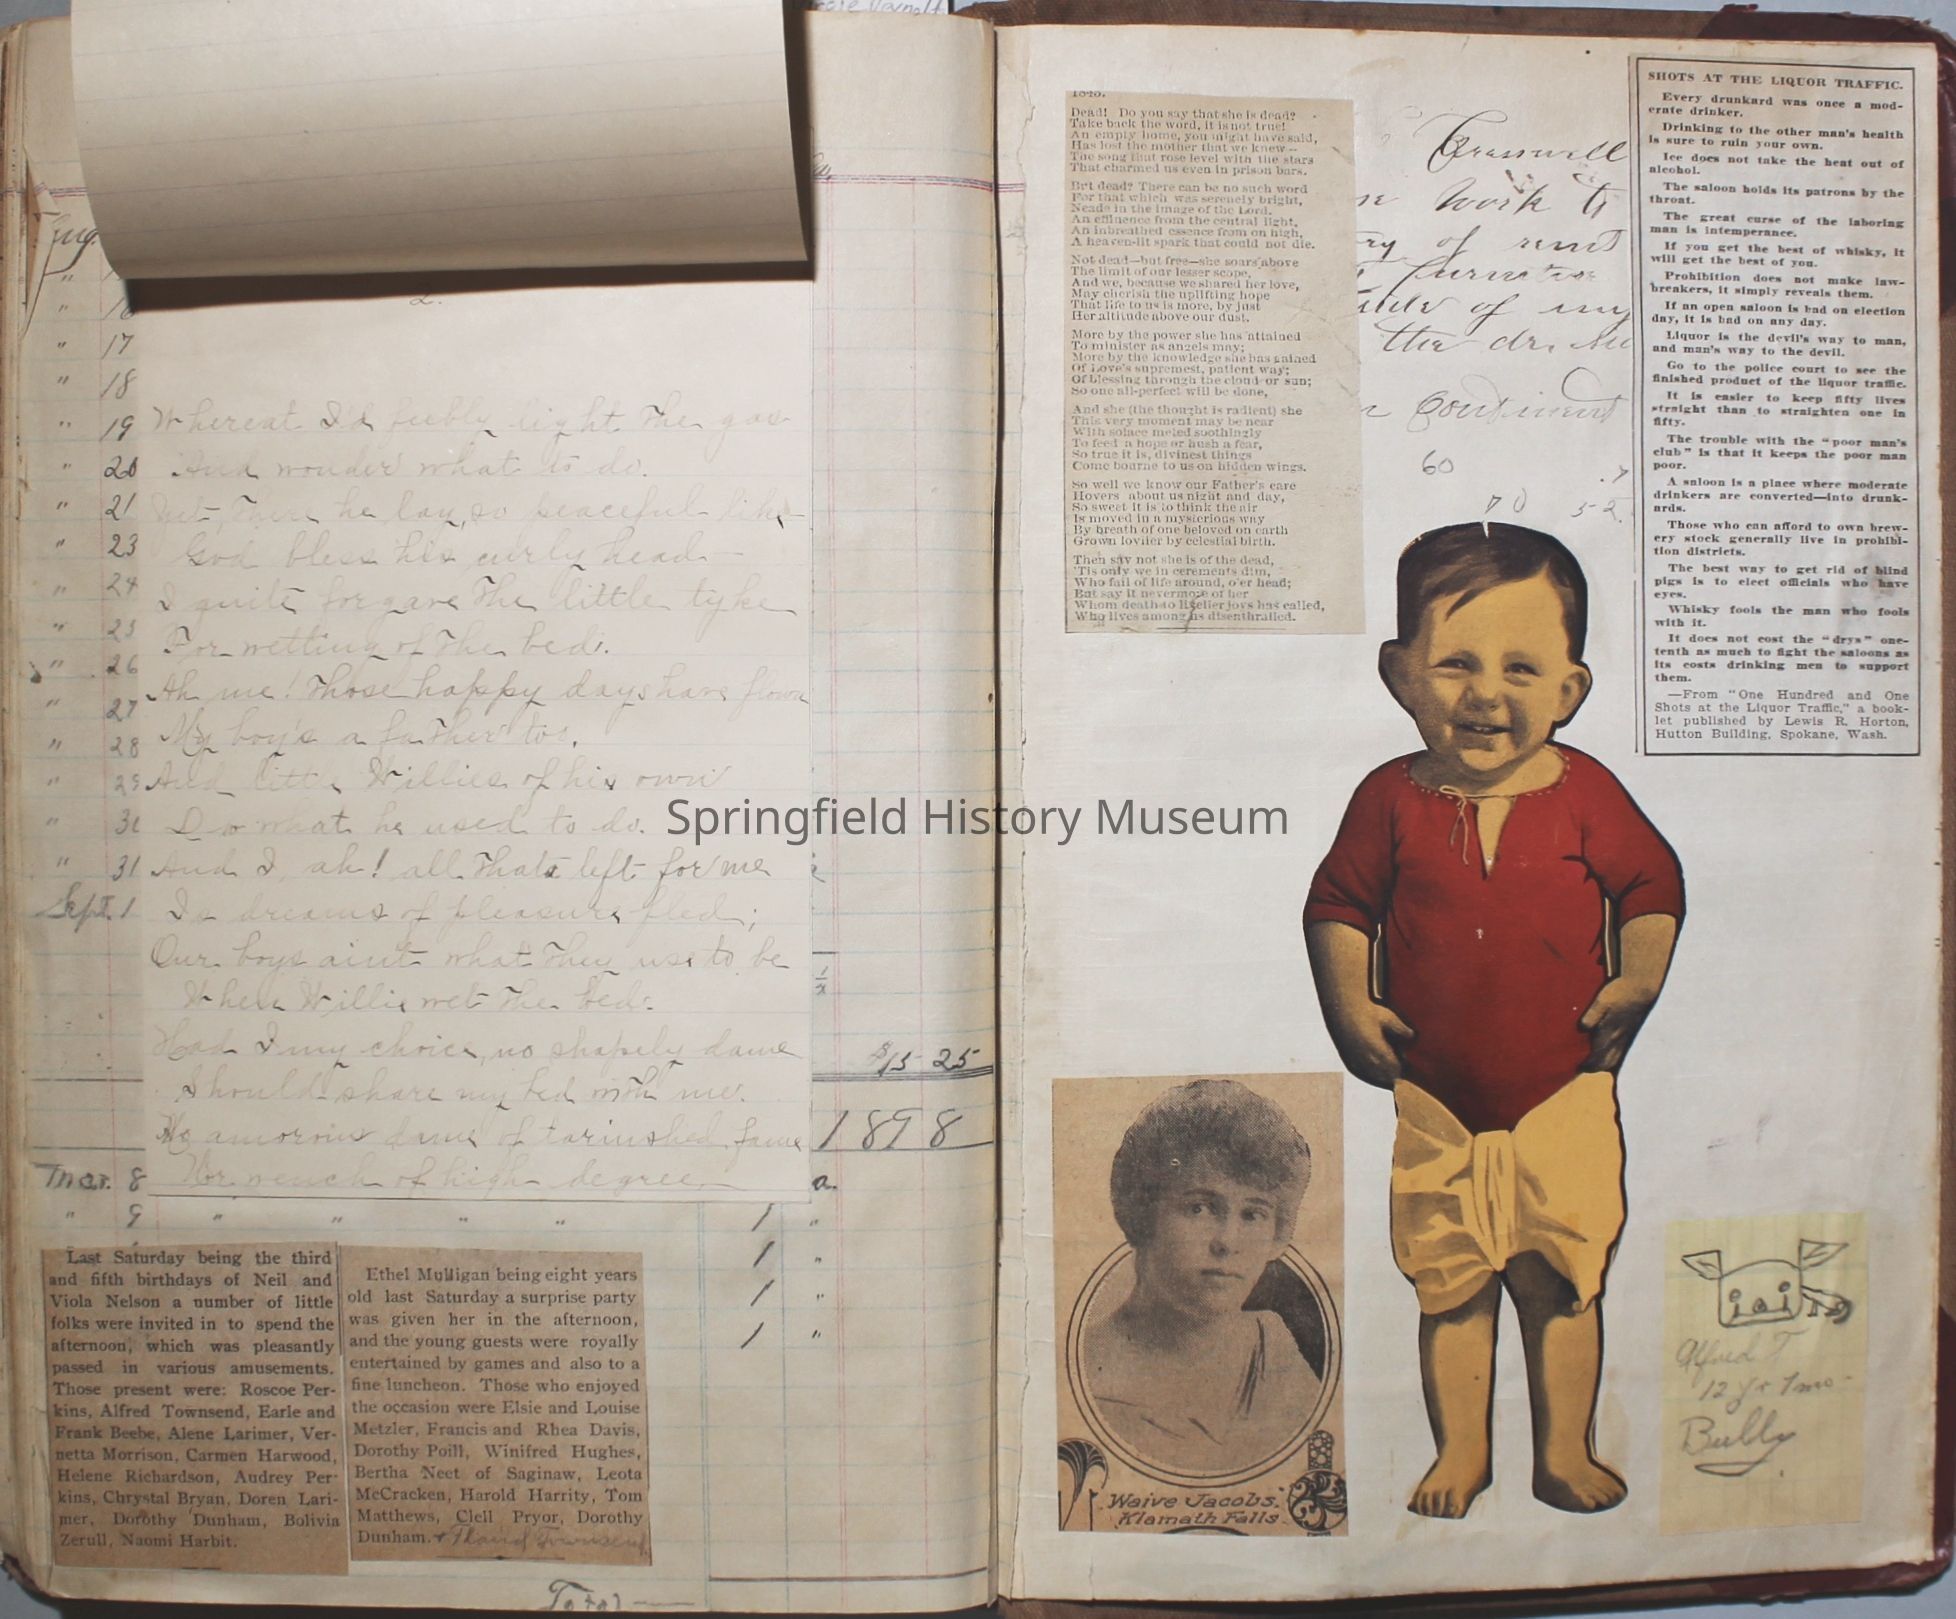 Aug.
16
" 17
" 18
" 19
" 20
" 21
" 23
" 24
" 25
" 26
" 27
" 28
" 29
" 31
Sept. 1
$15 25
1898
Mar. 8
" 9 " " " " 1 "
1 "
1 "
1 "
2.
Whereat I'd feebly light the gas
And wonder what to do.
Yet, there he lay, so peaceful like
God bless his curly head
I quite forgave the little tyke
For wetting of the bed.
Ah me! Those happy days have flown
My boy's a father too.
And little Willies of his own
Do what he used to do.
And I, ah! all thats left for me
Is dreams of pleasure fled;
Our boys aint what they use to be
When Willie wet the bed.
Had I my choice, no shapely dame
Should share my bed with me.
No amorous dame of tarinshed fame
Nor wench of high degree.
Last Saturday being the third
and fifth birthdays of Neil and
Viola Nelson a number of little
folks were invited in to spend the
afternoon, which was pleasantly
passed in various amusements.
Those present were: Roscoe Per-
kins, Alfred Townsend, Earle and
Frank Beebe, Alene Larimer, Ver-
netta Morrison, Carmen Harwood,
Helene Richardson, Audrey Per-
kins, Chrystal Bryan, Doren Lari-
mer, Dorothy Dunham, Bolivia
Zerull, Naomi Harbit.
Ethel Mulligan being eight years
old last Saturday a surprise party
was given her in the afternoon,
and the young guests were royally
entertained by games and also to a
fine luncheon. Those who enjoyed
the occasion were Elsie and Louise
Metzler, Francis and Rhea Davis,
Dorothy Poill, Winifred Hughes,
Bertha Neet of Saginaw, Leota
McCracken, Harold Harrity, Tom
Matthews, Clell Pryor, Dorothy
Dunham. Townsend
1843.
Dead! Do you say that she is dead?
Take back the word, it is not true!
An empty home, you might have said,
Has lost the mother that we knew—
The song that rose level with the stars
That charmed us even in prison bars.
But dead? There can be no such word
For that which was serenely bright,
Neade in the image of the Lord.
An effluence from the central light,
An inbreathed essence from on high,
A heaven-lit spark that could not die.
Not dead—but free—she soars above
The limit of our lesser scope,
And we, because we shared her love,
May cherish the uplifting hope
That life to us is more, by just
Her altitude above our dust.
More by the power she has attained
To minister as angels may;
More by the knowledge she has gained
Of Love's supremest, patient way;
Of blessing through the cloud or sun;
So one all-perfect will be done,
And she (the thought is radient) she
This very moment may be near
With solace meted soothingly
To feed a hope or hush a fear,
So true it is, divinest things
Come bourne to us on hidden wings.
So well we know our Father's care
Hovers about us night and day,
So sweet it is to think the air
Is moved in a mysterious way
By breath of one beloved on earth
Grown lovlier by celestial birth.
Then say not she is of the dead,
'Tis only we in cerements dim,
Who fail of life around, o'er head;
But say it nevermore of her
Whom death to lifelier joys has called,
Who lives among us disenthralled.
Cresswell
work to
of
furniture
of my
the
60
70 52.
SHOTS AT THE LIQUOR TRAFFIC.
Every drunkard was once a mod-
erate drinker.
Drinking to the other man's health
is sure to ruin your own.
Ice does not take the heat out of
alcohol.
The saloon holds its patrons by the
throat.
The great curse of the laboring
man is intemperance.
If you get the best of whisky, it
will get the best of you.
Prohibition does not make law-
breakers, it simply reveals them.
If an open saloon is bad on election
day, it is bad on any day.
Liquor is the devil's way to man,
and man's way to the devil.
Go to the police court to see the
finished product of the liquor traffic.
It is easier to keep fifty lives
straight than to straighten one in
fifty.
The trouble with the "poor man's
club" is that it keeps the poor man
poor.
A saloon is a place where moderate
drinkers are converted—into drunk-
ards.
Those who can afford to own brew-
ery stock generally live in prohibi-
tion districts.
The best way to get rid of blind
pigs is to elect officials who have
eyes.
Whisky fools the man who fools
with it.
It does not cost the "drys" one-
tenth as much to fight the saloons as
its costs drinking men to support
them.
—From "One Hundred and One
Shots at the Liquor Traffic," a book-
let published by Lewis R. Horton,
Hutton Building, Spokane, Wash.
Springfield History Museum
Waive Jacobs.
Klamath Falls
Alfred T
12 yr 7 mo
Bully